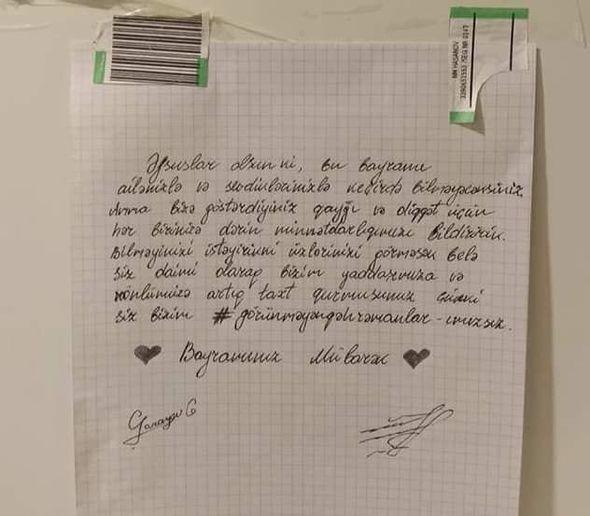 MM HASANOV
3290652553 /SEG NR 0147
Əfsuslar olsun ki, bu bayramı
ailənizlə və sevdiklərinizlə keçirdə bilməyəcəksiniz,
Amma bizə göstərdiyiniz qayğı və diqqət üçün
hər birinizə dərin minnətdarlığımızı bildiririk.
Bilməyinizi istəyirikki üzlərinizi görməsək belə
siz daimi olaraq bizim yaddaşımıza və
könlümüzə artıq taxt qurmusunuz çünki
siz bizim #görünməyənqəhrəmanlar-ımızsız.
Bayramınız Mübarək